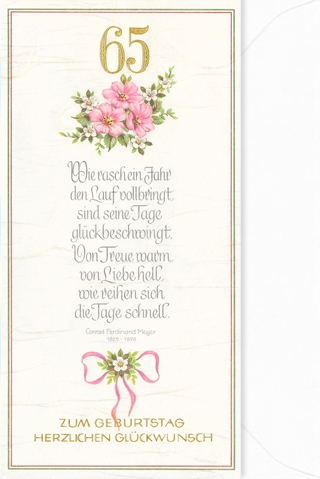 65
Wie rasch ein Jahr
den Lauf vollbringt,
sind seine Tage
glückbeschwingt.
Von Treue warm,
von Liebe hell,
wie reihen sich
die Tage schnell.
Conrad Ferdinand Meyer
1825 - 1898
ZUM GEBURTSTAG
HERZLICHEN GLÜCKWUNSCH